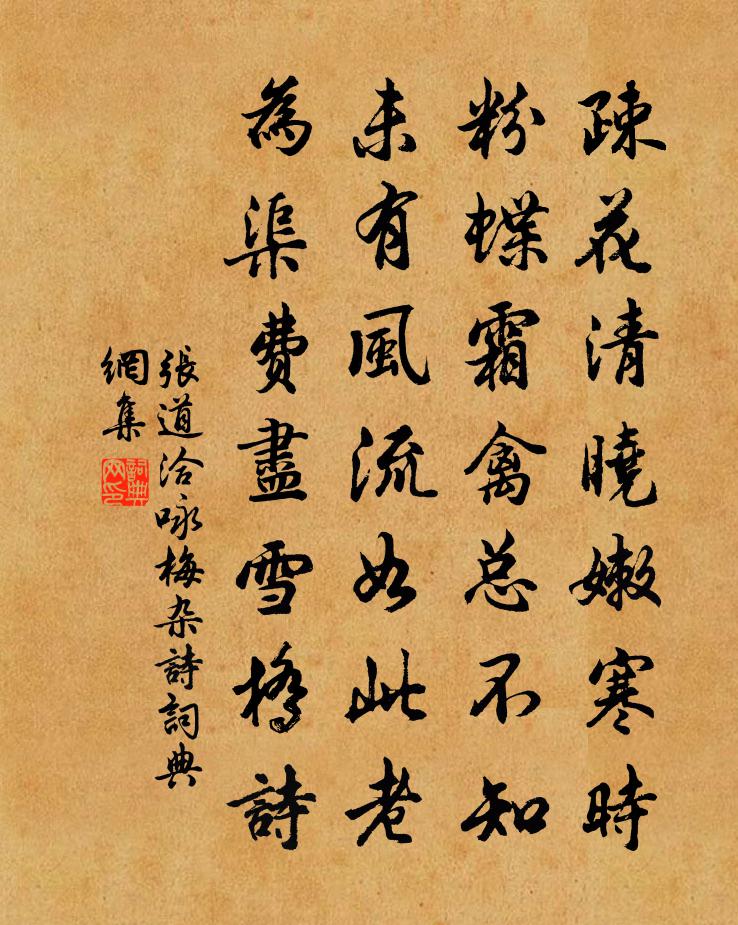 疎花清曉嫩寒時
粉蝶霜禽总不知
未有風流如此老
為渠費盡雪橋詩
張道洽咏梅杂詩詞典
網集
詞典网印